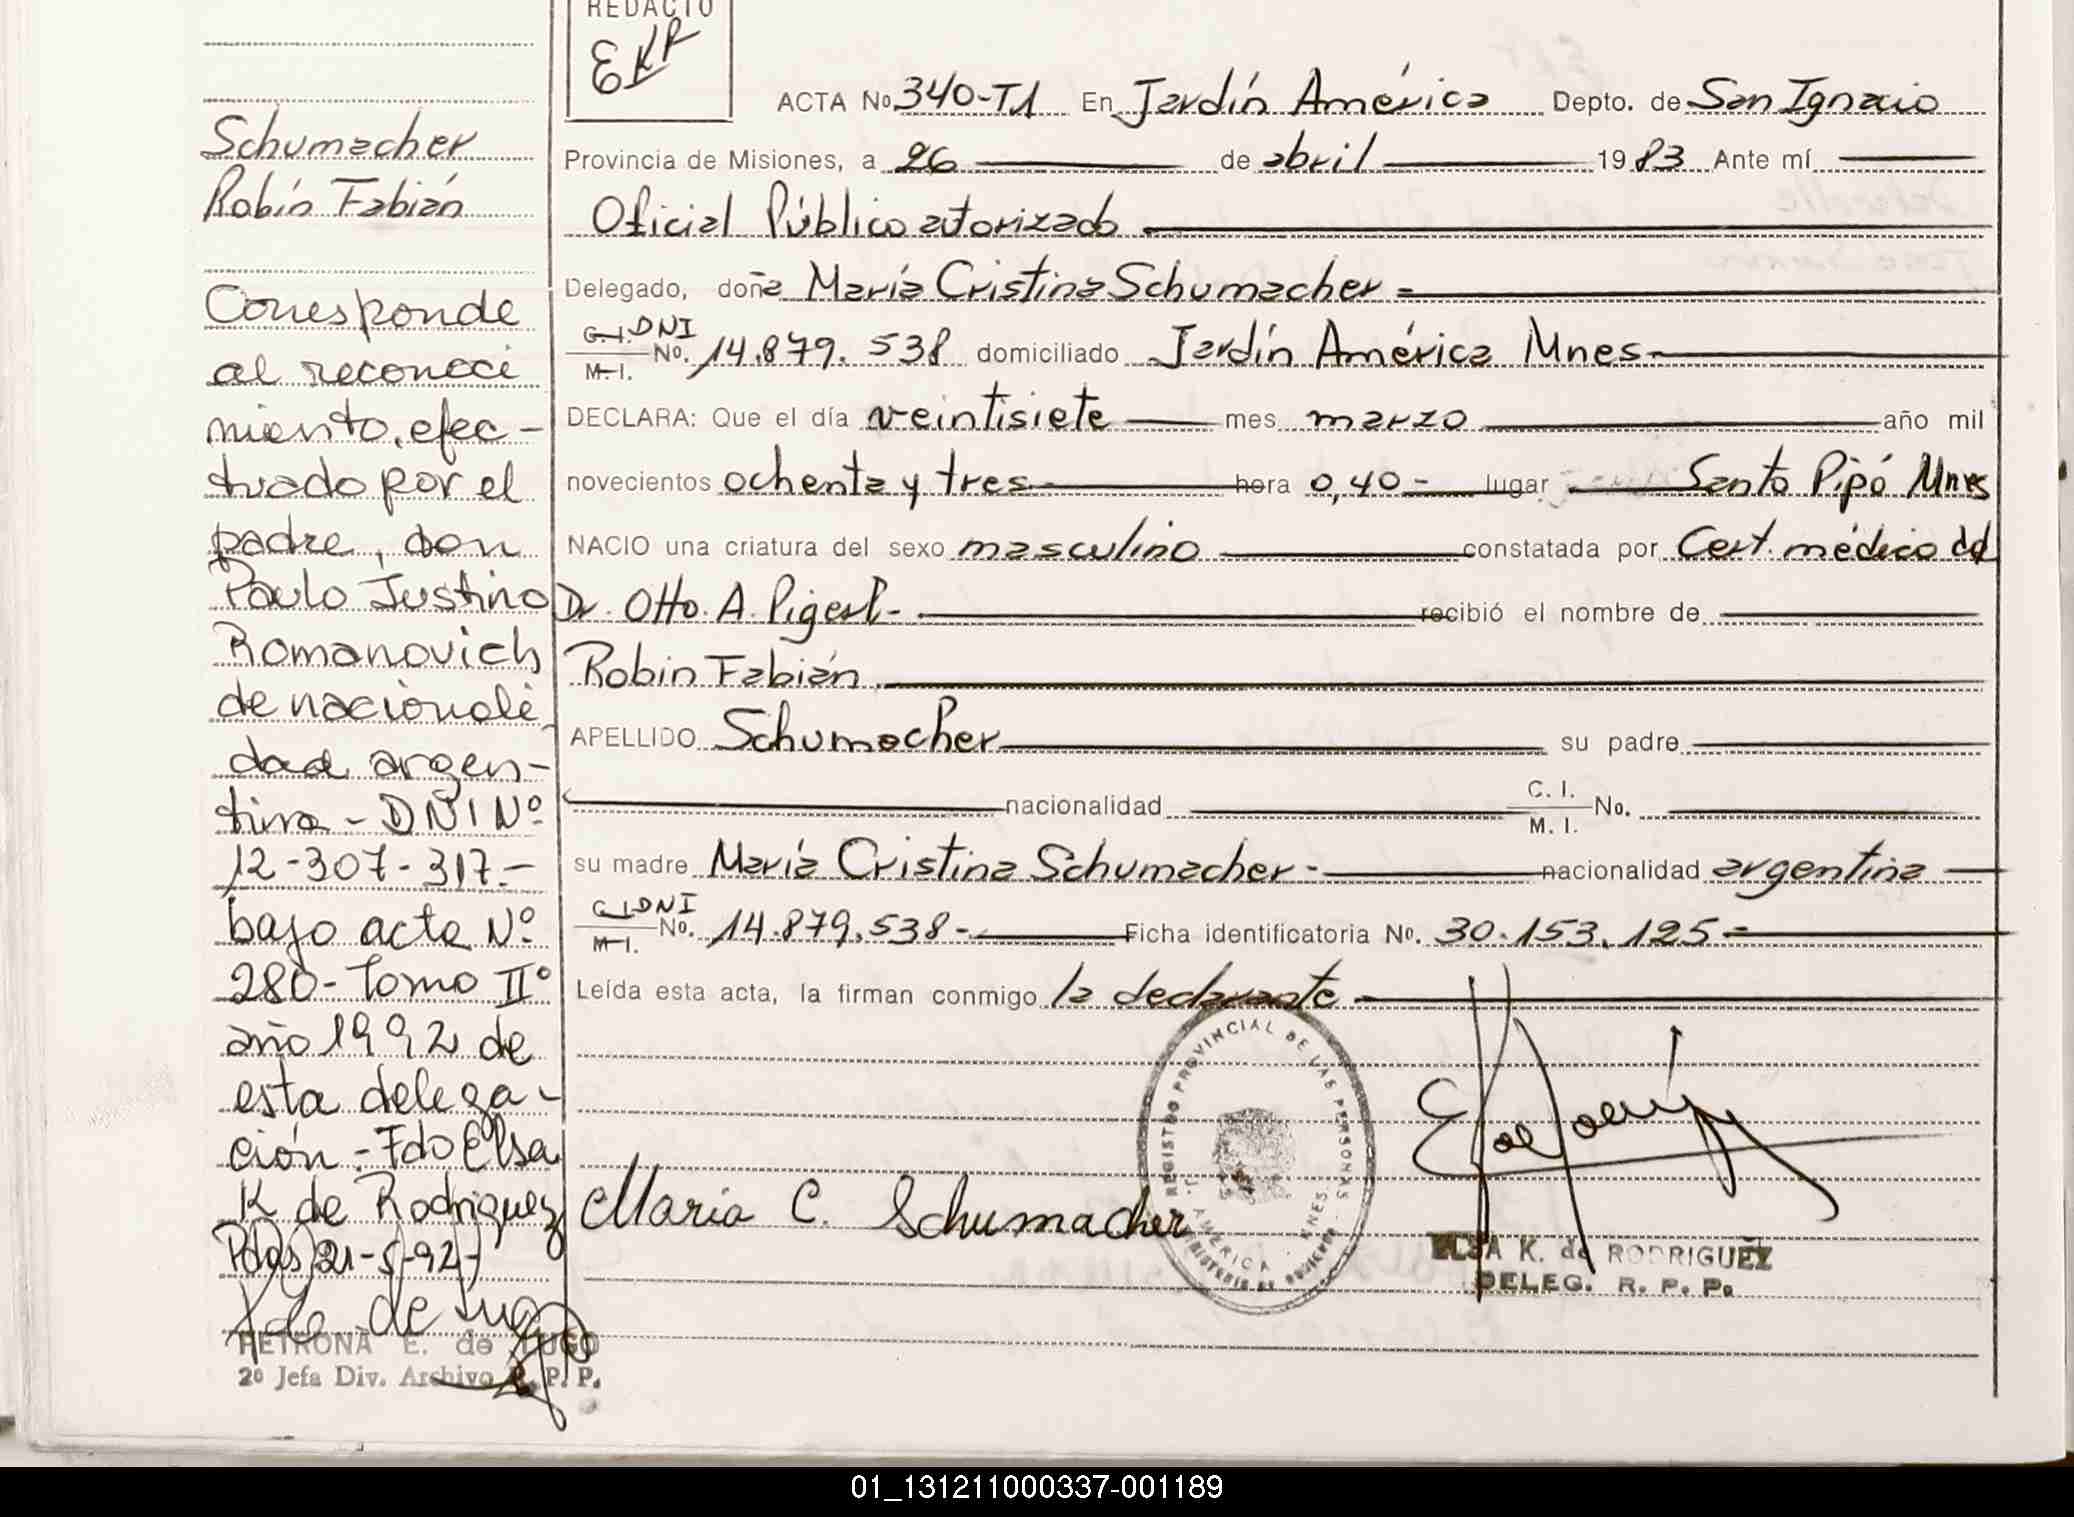 REDACTO
EKR
ACTA No 340-T1 En Jardín América Depto. de San Ignacio
Provincia de Misiones, a 26 de abril 1983 Ante mí
Oficial Público autorizado
Delegado, doña María Cristina Schumacher =
C.I. DNI
M.I. No. 14.879.538 domiciliado Jardín América Mnes-
DECLARA: Que el día veintisiete mes marzo año mil
novecientos ochenta y tres hora 0,40 - lugar Santo Pipó Mnes
NACIO una criatura del sexo masculino constatada por Cert. médico del
Dr. Otto. A. recibió el nombre de
Robin Fabián
APELLIDO Schumacher su padre
nacionalidad C. I.
M. I. No.
su madre María Cristina Schumacher - nacionalidad argentina
C.I. DNI
M.I. No. 14.879.538- Ficha identificatoria No. 30.153.125=
Leída esta acta, la firman conmigo la declarante
Maria C. Schumacher
REGISTRO PROVINCIAL DE LAS PERSONAS
J. AMERICA - MNES.
MINISTERIO DE GOBIERNO
ELSA K. de RODRIGUEZ
DELEG. R. P. P.
Schumacher
Robín Fabián
Corresponde
al reconoci
miento, efec-
tuado por el
padre, don
Paulo Justino
Romanovich
de nacionali
dad argen-
tina - DNI Nº
12-307-317.-
bajo acta Nº
280- Tomo IIº
año 1992 de
esta delega-
ción.- Fdo Elsa
K de Rodriguez
Pdas 21-5-92-
PETRONA E. de LUGO
2º Jefa Div. Archivo R. P. P.
01_131211000337-001189